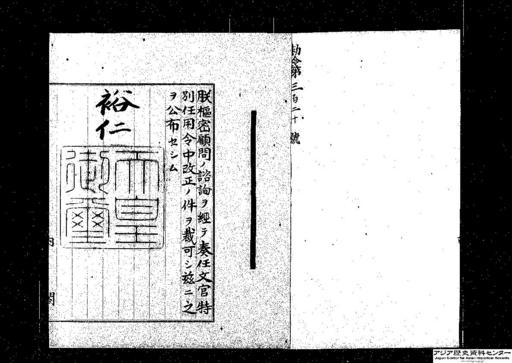 勅令第三百二十號
朕樞密顧問ノ諮詢ヲ經テ奏任文官特
別任用令中改正ノ件ヲ裁可シ茲ニ之
ヲ公布セシム
裕仁
天皇
御璽
内閣
アジア歴史資料センター
Japan Center for Asian Historical Records